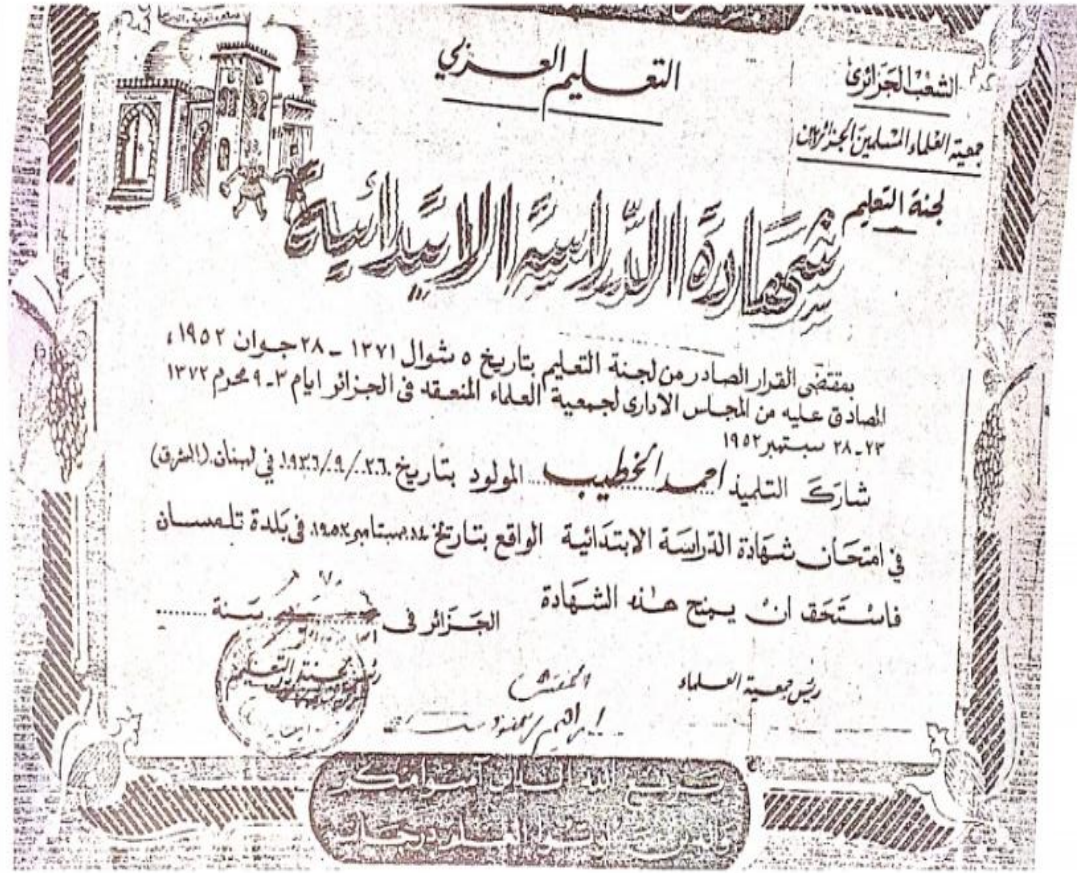 الشعب الجزائري
جمعية العلماء المسلمين الجزائريين
لجنة التعليم
التعليم العربي
شهادة الدراسة الابتدائية
بمقتضى القرار الصادر من لجنة التعليم بتاريخ ٥ شوال ١٣٧١ - ٢٨ جوان ١٩٥٢،
المصادق عليه من المجلس الاداري لجمعية العلماء المنعقد في الجزائر ايام ٣-٩ محرم ١٣٧٢
٢٣-٢٨ سبتمبر ١٩٥٢
شارك التلميذ احمد الخطيب المولود بتاريخ ٢٦/٩/١٩٣٦ في لبنان (الشرق)
في امتحان شهادة الدراسة الابتدائية الواقع بتاريخ ١٤ سبتامبر ١٩٥٢ في بلدة تلمسان
فاستحق ان يمنح هذه الشهادة
الجزائر في سنة
رئيس جمعية العلماء
المفتش
رئيس لجنة التعليم
يرفع الله الذين آمنوا منكم
والذين أوتوا العلم درجات